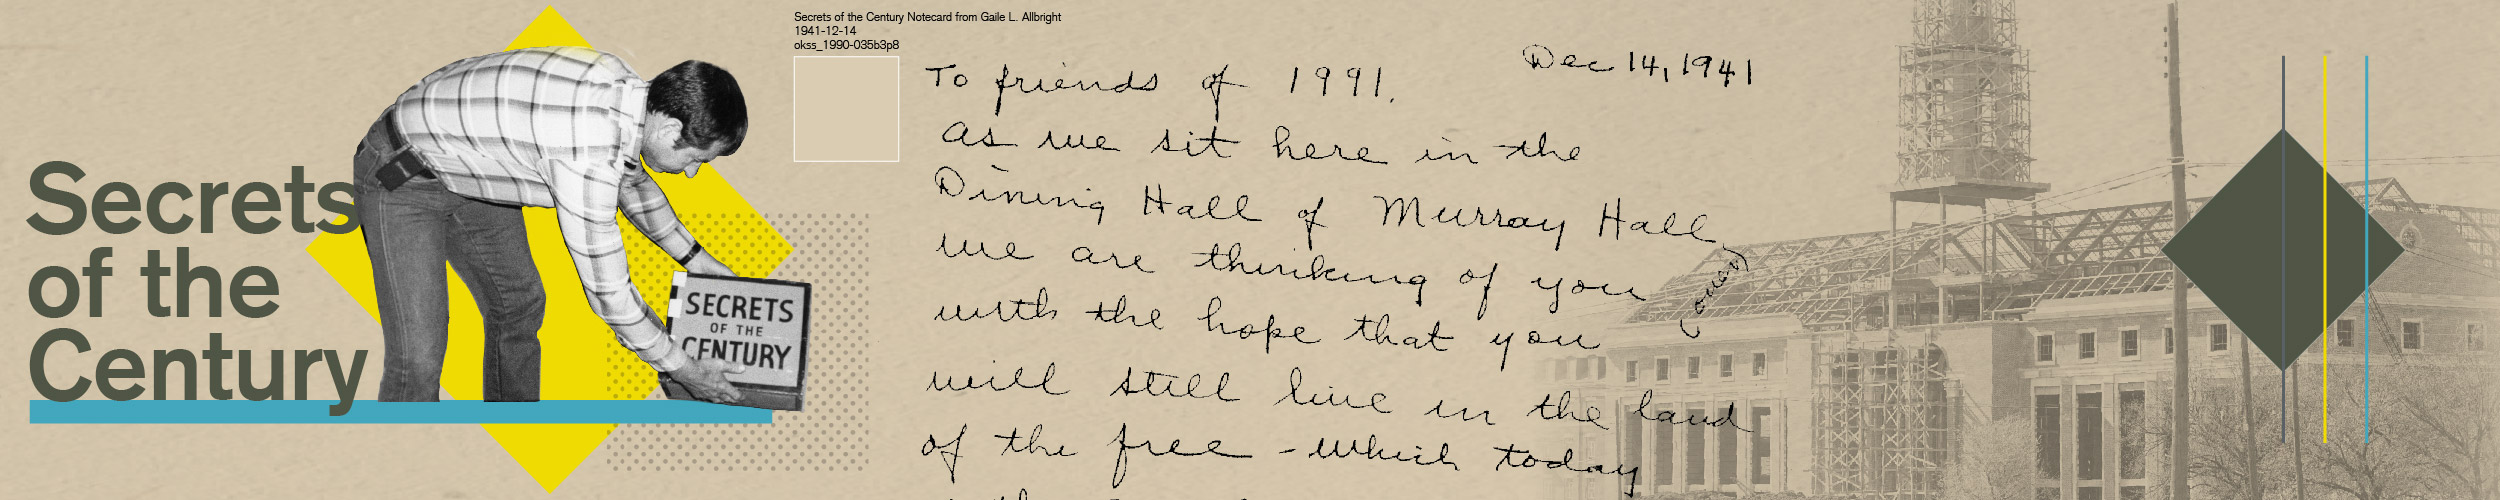 Secrets
of the
Century
SECRETS
OF THE
CENTURY
Secrets of the Century Notecard from Gaile L. Allbright
1941-12-14
okss_1990-035b3p8
Dec 14, 1941
To friends of 1991.
As we sit here in the
Dining Hall of Murray Hall
we are thinking of you
with the hope that you
will still live in the land
of the free - which today